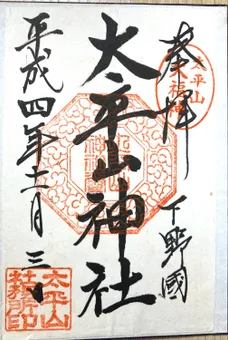 奉拝
下野國
太平山神社
平成四年十二月三日
太平山
社務所印